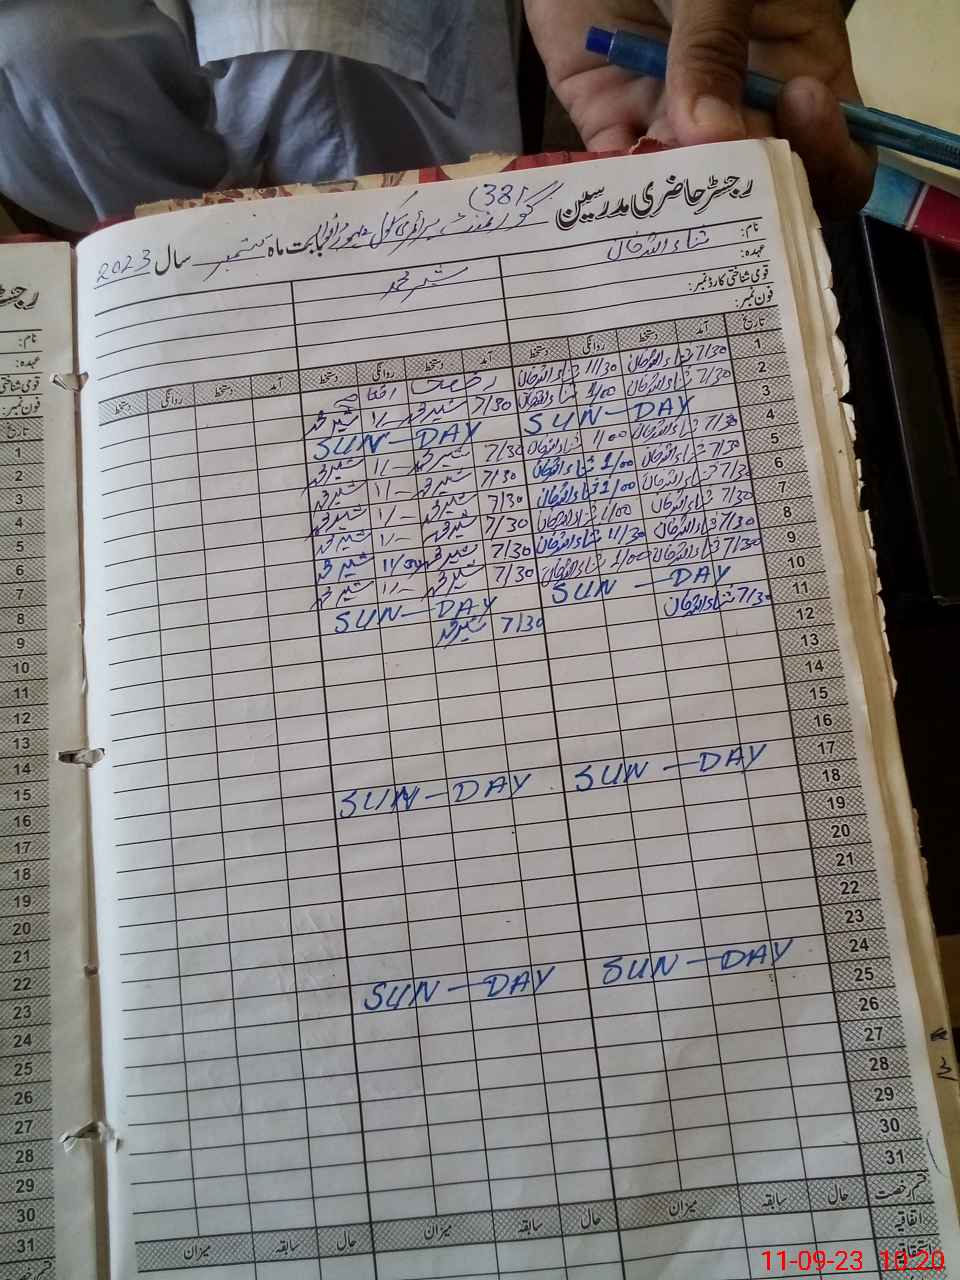 رجسٹر حاضری مدرسین گورنمنٹ پرائمری سکول (381
بابت ماہ ستمبر سال 2023
نام: ثناء اللہ خان شیر محمد
عہدہ:
قومی شناختی کارڈ نمبر:
فون نمبر:
تاریخ آمد دستخط روانگی دستخط آمد دستخط روانگی دستخط آمد دستخط روانگی دستخط
1 7/30 ثناء اللہ خان 11/30 ثناء اللہ خان رخصت اتفاقیہ
2 7/30 ثناء اللہ خان 1/00 ثناء اللہ خان 7/30 شیر محمد 1/- شیر محمد
3 SUN-DAY SUN-DAY
4 7/30 ثناء اللہ خان 1/00 ثناء اللہ خان 7/30 شیر محمد 1/- شیر محمد
5 7/30 ثناء اللہ خان 1/00 ثناء اللہ خان 7/30 شیر محمد 1/- شیر محمد
6 7/30 ثناء اللہ خان 1/00 ثناء اللہ خان 7/30 شیر محمد 1/- شیر محمد
7 7/30 ثناء اللہ خان 1/00 ثناء اللہ خان 7/30 شیر محمد 1/- شیر محمد
8 7/30 ثناء اللہ خان 11/30 ثناء اللہ خان 7/30 شیر محمد 11/30 شیر محمد
9 7/30 ثناء اللہ خان 1/00 ثناء اللہ خان 7/30 شیر محمد 1/- شیر محمد
10 SUN-DAY SUN-DAY
11 7/30 ثناء اللہ خان 7/30 شیر محمد
12
13
14
15
16
17 SUN-DAY SUN-DAY
18
19
20
21
22
23
24 SUN-DAY SUN-DAY
25
26
27
28
29
30
31
قسم رخصت حال سابقہ میزان حال سابقہ میزان حال سابقہ میزان
اتفاقیہ
استحقاقیہ
رجسٹر
نام:
عہدہ:
قومی شناختی کارڈ
فون نمبر:
تاریخ
1
2
3
4
5
6
7
8
9
10
11
12
13
14
15
16
17
18
19
20
21
22
23
24
25
26
27
28
29
30
31
قسم رخصت
11-09-23 10:20